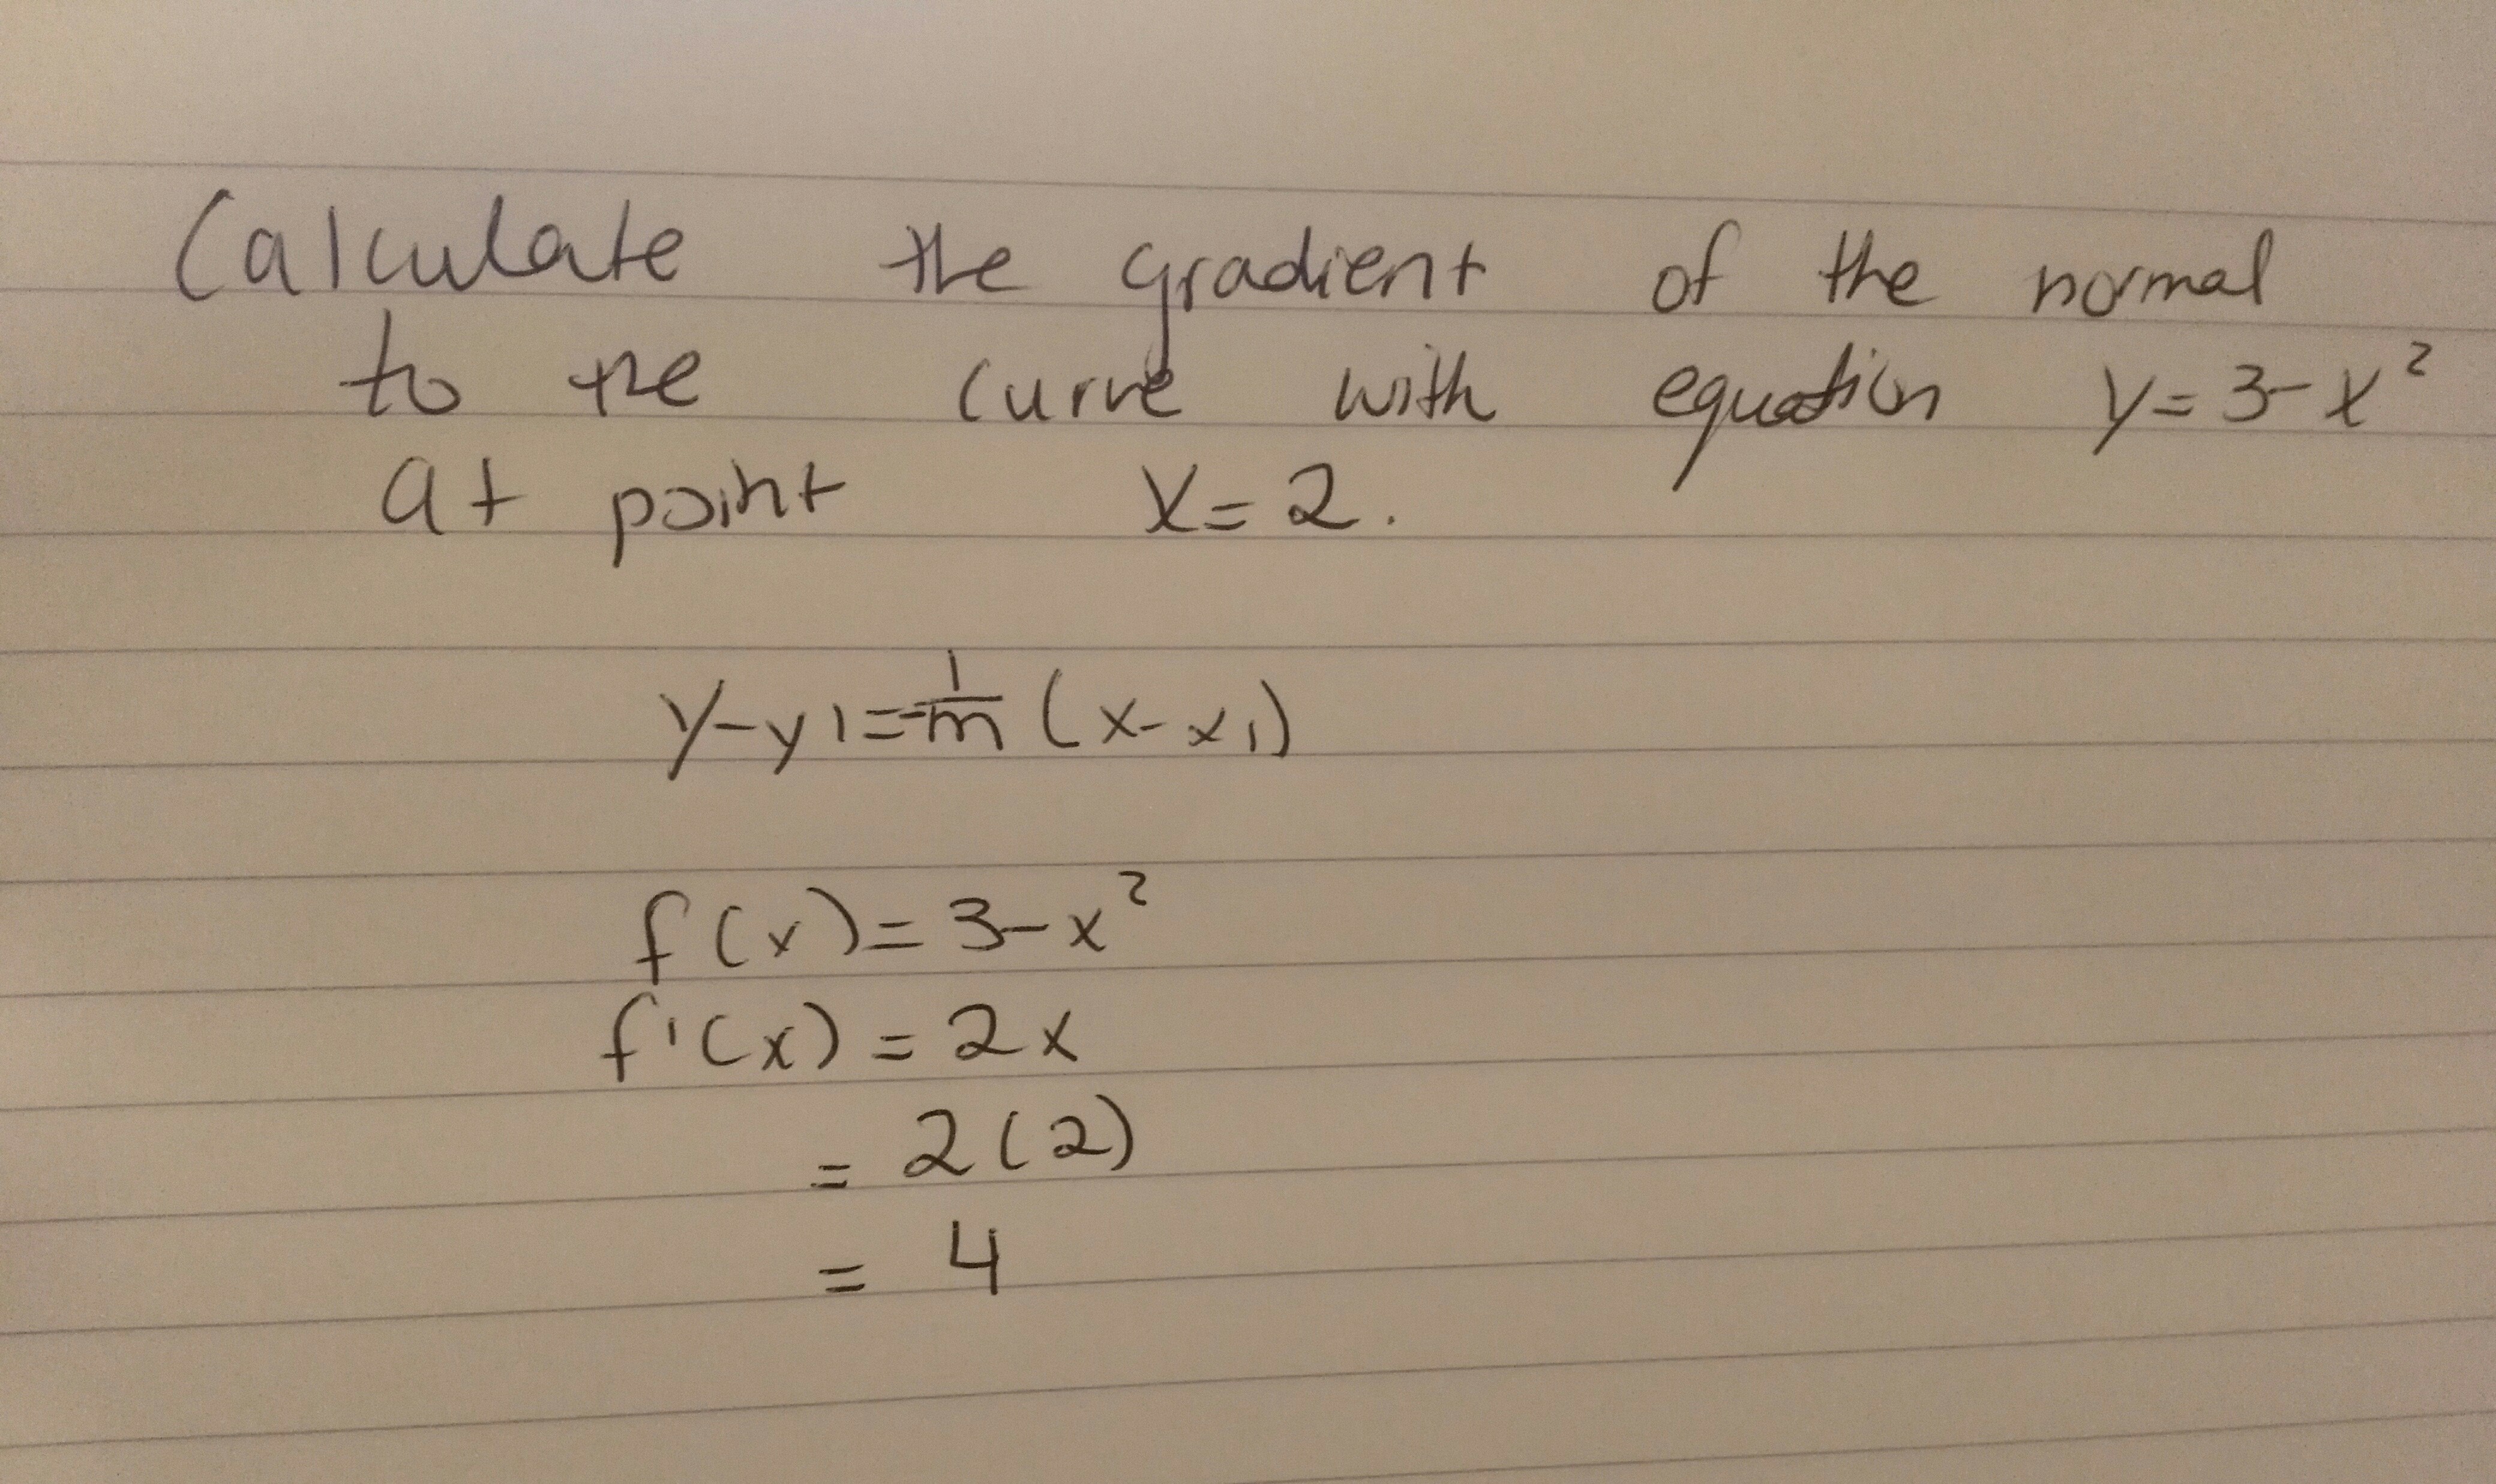 Calculate the gradient of the normal
to the curve with equation y=3-x²
at point x=2.
y-y1=-1/m (x-x1)
f(x)=3-x²
f'(x)=2x
=2(2)
=4